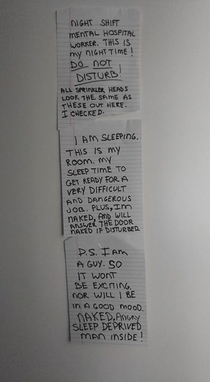 NIGHT SHIFT
MENTAL HOSPITAL
WORKER. THIS IS
MY NIGHT TIME!
DO NOT
DISTURB!
ALL SPRINKLER HEADS
LOOK THE SAME AS
THESE OUT HERE.
I CHECKED.
I AM SLEEPING.
THIS IS MY
ROOM. MY
SLEEP TIME TO
GET READY FOR A
VERY DIFFICULT
AND DANGEROUS
JOB. PLUS, I'M
NAKED, AND WILL
ANSWER THE DOOR
NAKED IF DISTURBED
P.S. I AM
A GUY. SO
IT WONT
BE EXCITING,
NOR WILL I BE
IN A GOOD MOOD.
NAKED, ANGRY
SLEEP DEPRIVED
MAN INSIDE!